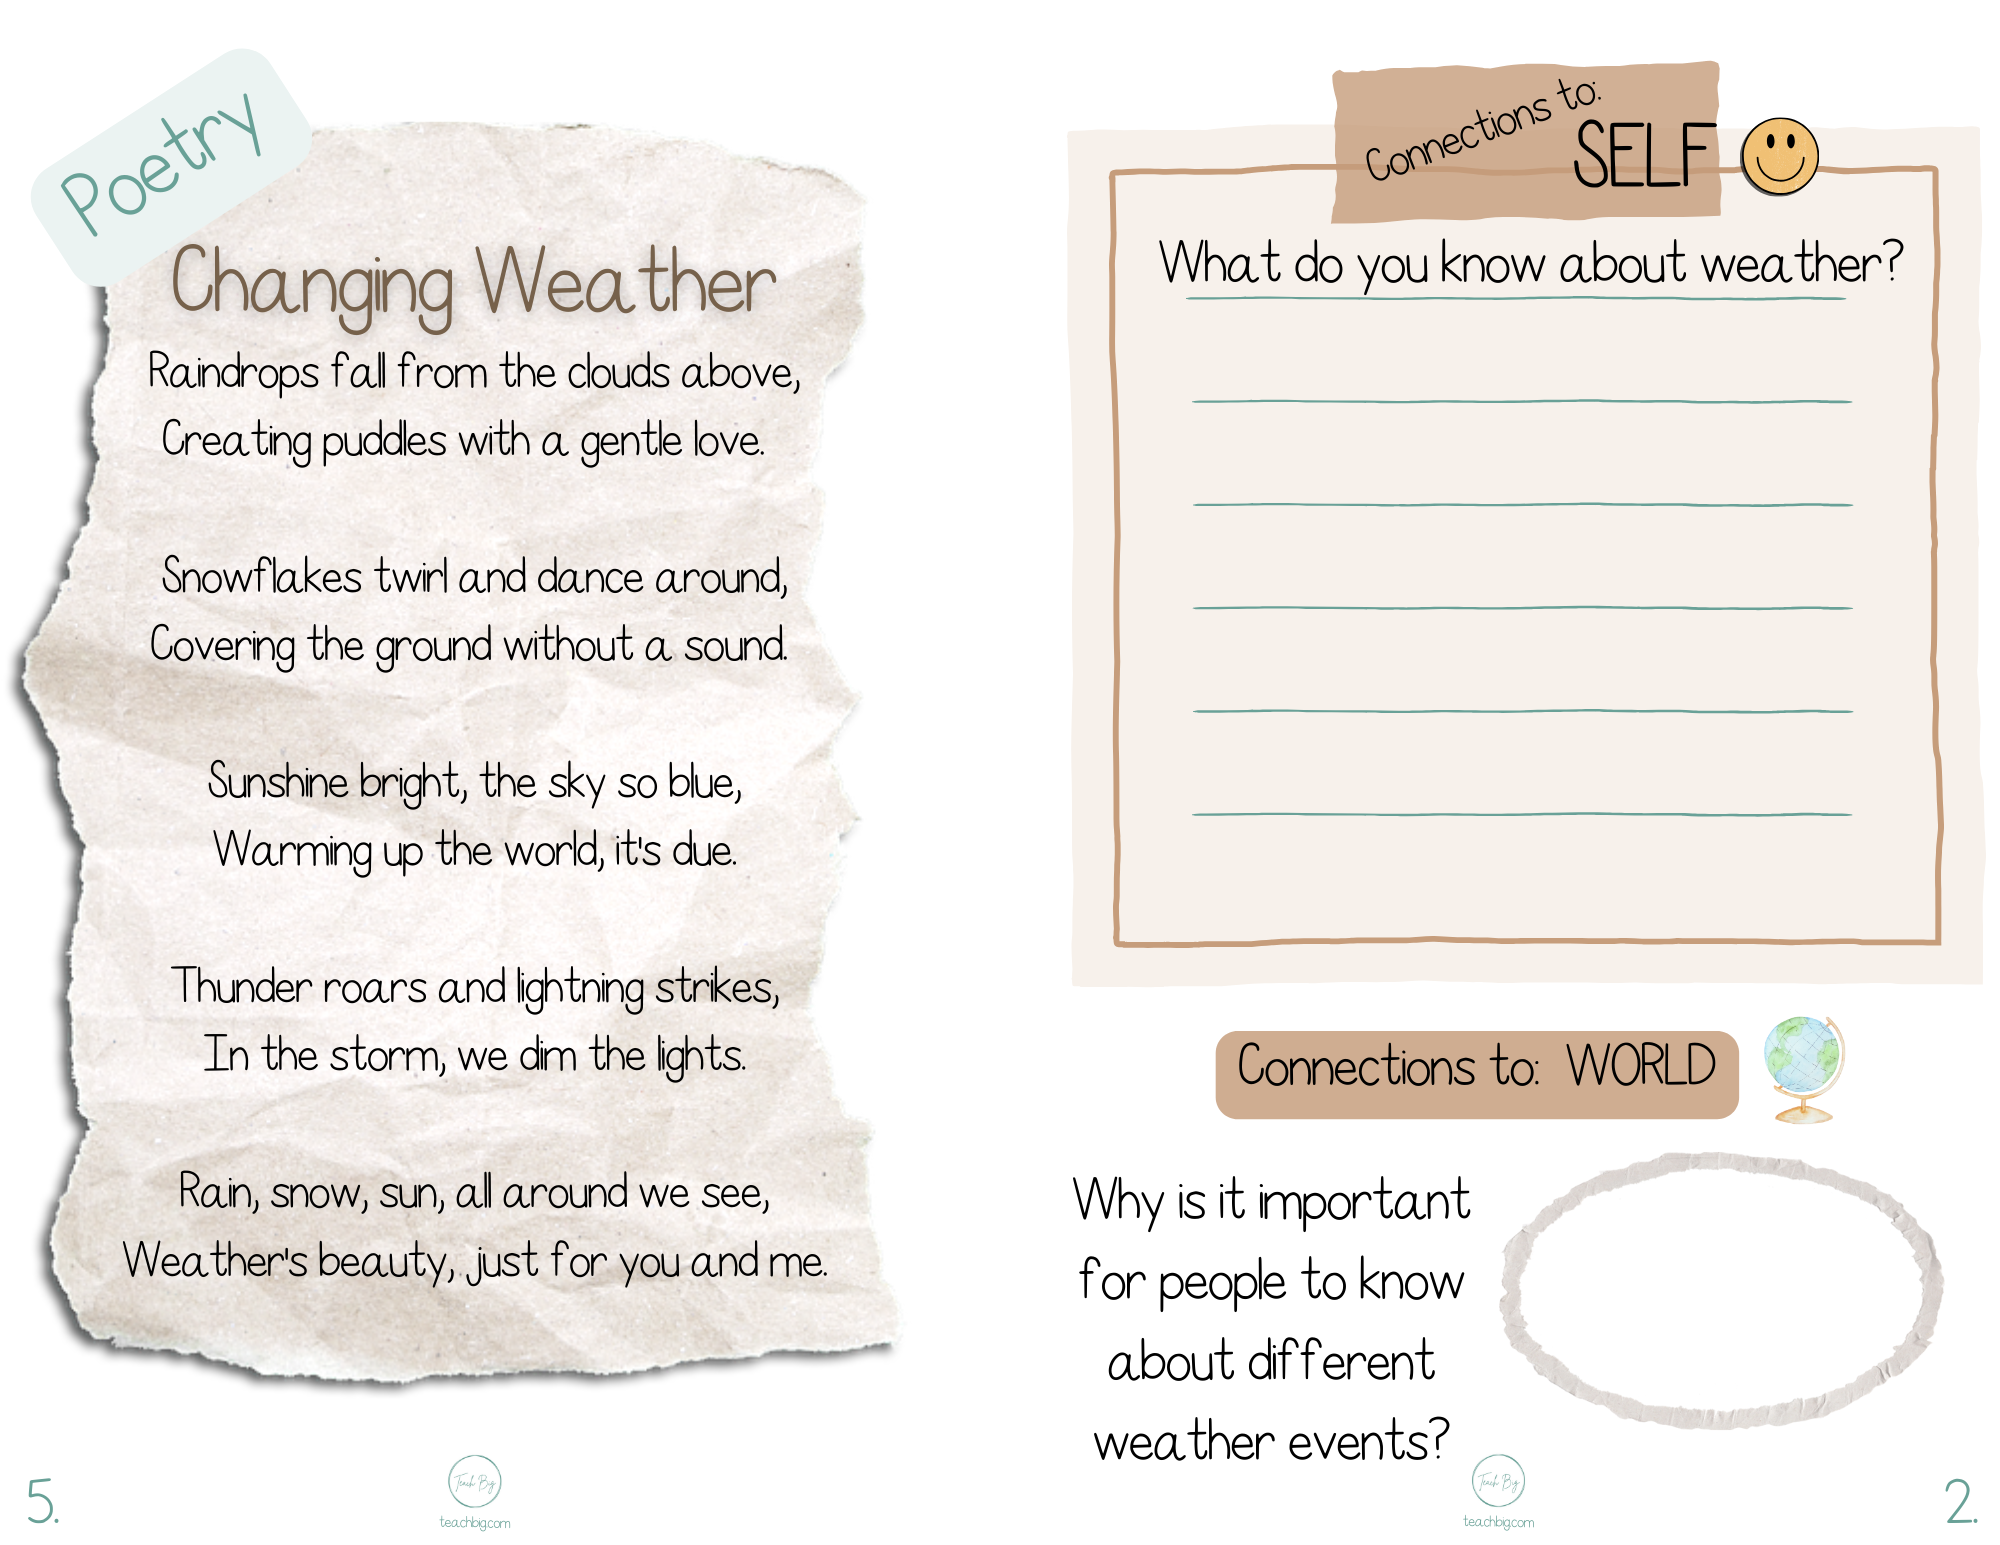 Poetry
Changing Weather
Raindrops fall from the clouds above,
Creating puddles with a gentle love.
Snowflakes twirl and dance around,
Covering the ground without a sound.
Sunshine bright, the sky so blue,
Warming up the world, it's due.
Thunder roars and lightning strikes,
In the storm, we dim the lights.
Rain, snow, sun, all around we see,
Weather's beauty, just for you and me.
Teach Big
teachbig.com
5.
Connections to:
SELF
What do you know about weather?
Connections to: WORLD
Why is it important
for people to know
about different
weather events?
Teach Big
teachbig.com
2.